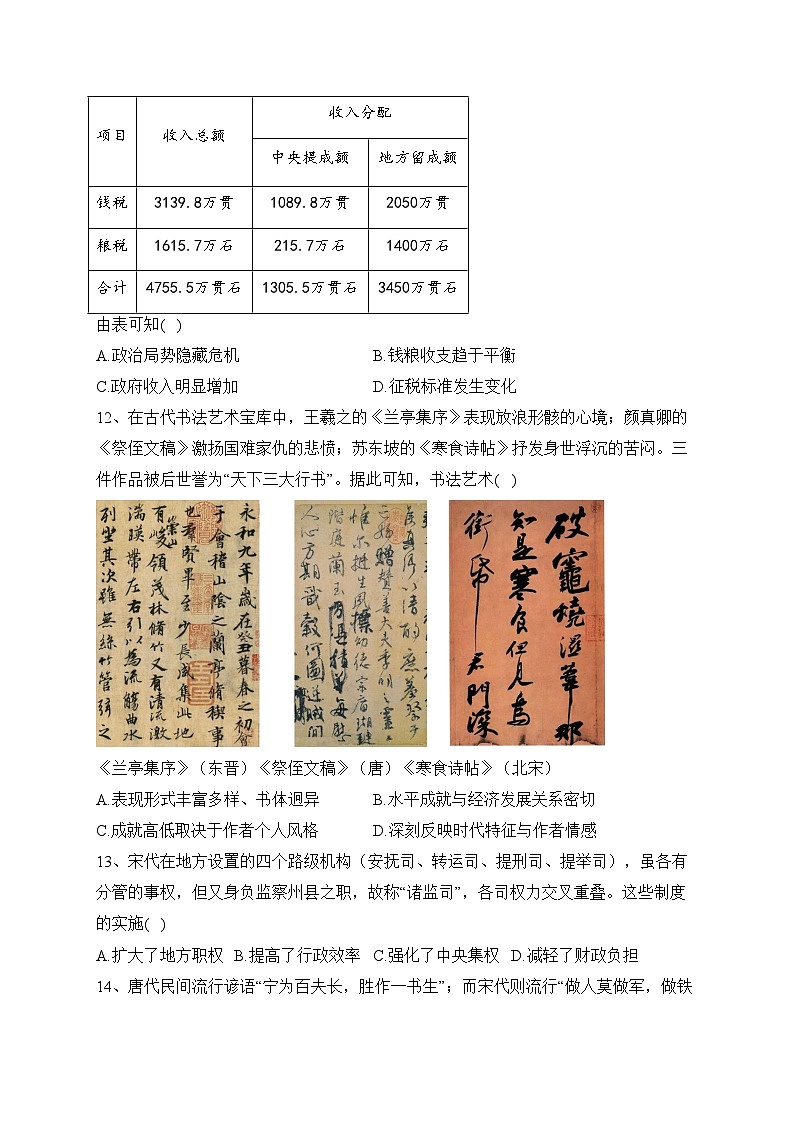 项目 收入总额 收入分配
中央提成额 地方留成额
钱税 3139.8万贯 1089.8万贯 2050万贯
粮税 1615.7万石 215.7万石 1400万石
合计 4755.5万贯石 1305.5万贯石 3450万贯石
由表可知( )
A.政治局势隐藏危机 B.钱粮收支趋于平衡
C.政府收入明显增加 D.征税标准发生变化
12、在古代书法艺术宝库中，王羲之的《兰亭集序》表现放浪形骸的心境；颜真卿的
《祭侄文稿》激扬国难家仇的悲愤；苏东坡的《寒食诗帖》抒发身世浮沉的苦闷。三
件作品被后世誉为“天下三大行书”。据此可知，书法艺术( )
永和九年歲在癸丑暮春之初會
于會稽山陰之蘭亭脩禊事
也羣賢畢至少長咸集此地
有崇山峻領茂林脩竹又有清流激
湍暎帶左右引以為流觴曲水
列坐其次雖無絲竹管弦之
惟爾挺生夙標幼德宗廟瑚璉
階庭蘭玉
人心方期戩穀何圖逆賊間
破竈燒濕葦那
知是寒食但見烏
銜帋君門深
《兰亭集序》（东晋）《祭侄文稿》（唐）《寒食诗帖》（北宋）
A.表现形式丰富多样、书体迥异 B.水平成就与经济发展关系密切
C.成就高低取决于作者个人风格 D.深刻反映时代特征与作者情感
13、宋代在地方设置的四个路级机构（安抚司、转运司、提刑司、提举司），虽各有
分管的事权，但又身负监察州县之职，故称“诸监司”，各司权力交叉重叠。这些制度
的实施( )
A.扩大了地方职权 B.提高了行政效率 C.强化了中央集权 D.减轻了财政负担
14、唐代民间流行谚语“宁为百夫长，胜作一书生”；而宋代则流行“做人莫做军，做铁